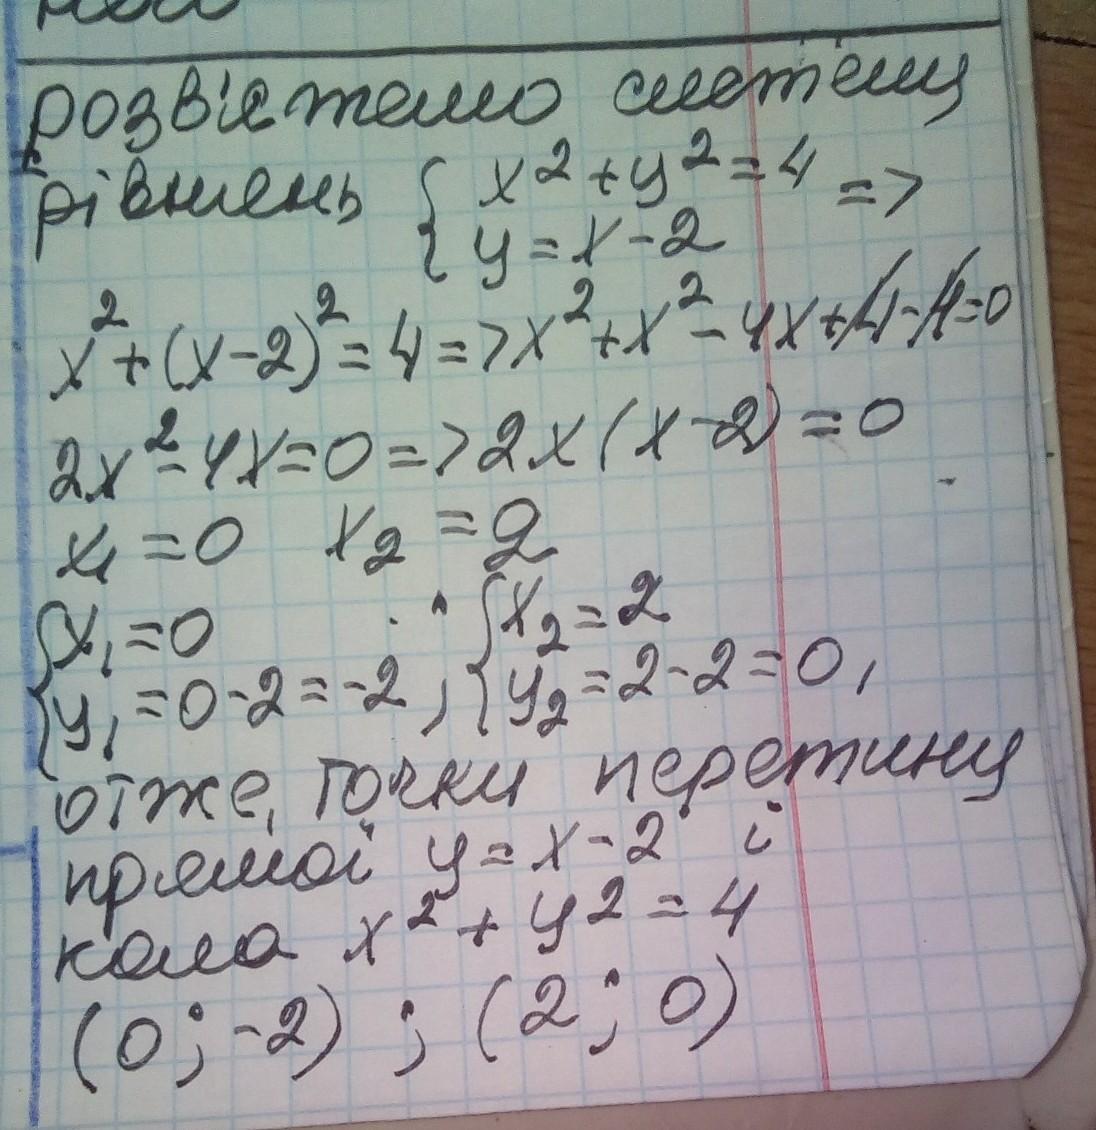 розв'яжемо систему
рівнянь { x² + y² = 4 =>
{ y = x - 2
x² + (x-2)² = 4 => x² + x² - 4x + 4 - 4 = 0
2x² - 4x = 0 => 2x(x-2) = 0
x₁ = 0 x₂ = 2
{ x₁ = 0 { x₂ = 2
{ y₁ = 0 - 2 = -2 ; { y₂ = 2 - 2 = 0,
отже, точки перетину
прямої y = x - 2 і
кола x² + y² = 4
(0; -2) ; (2; 0)